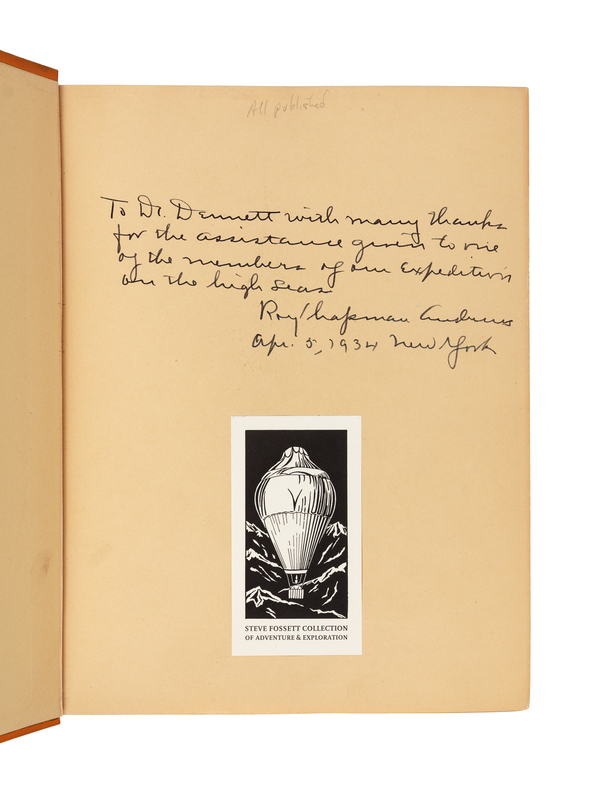 All published
To Dr. Dennett with many thanks
for the assistance given to one
of the members of our Expedition
on the high seas
Roy Chapman Andrews
Apr. 5, 1934 New York
STEVE FOSSETT COLLECTION
OF ADVENTURE & EXPLORATION